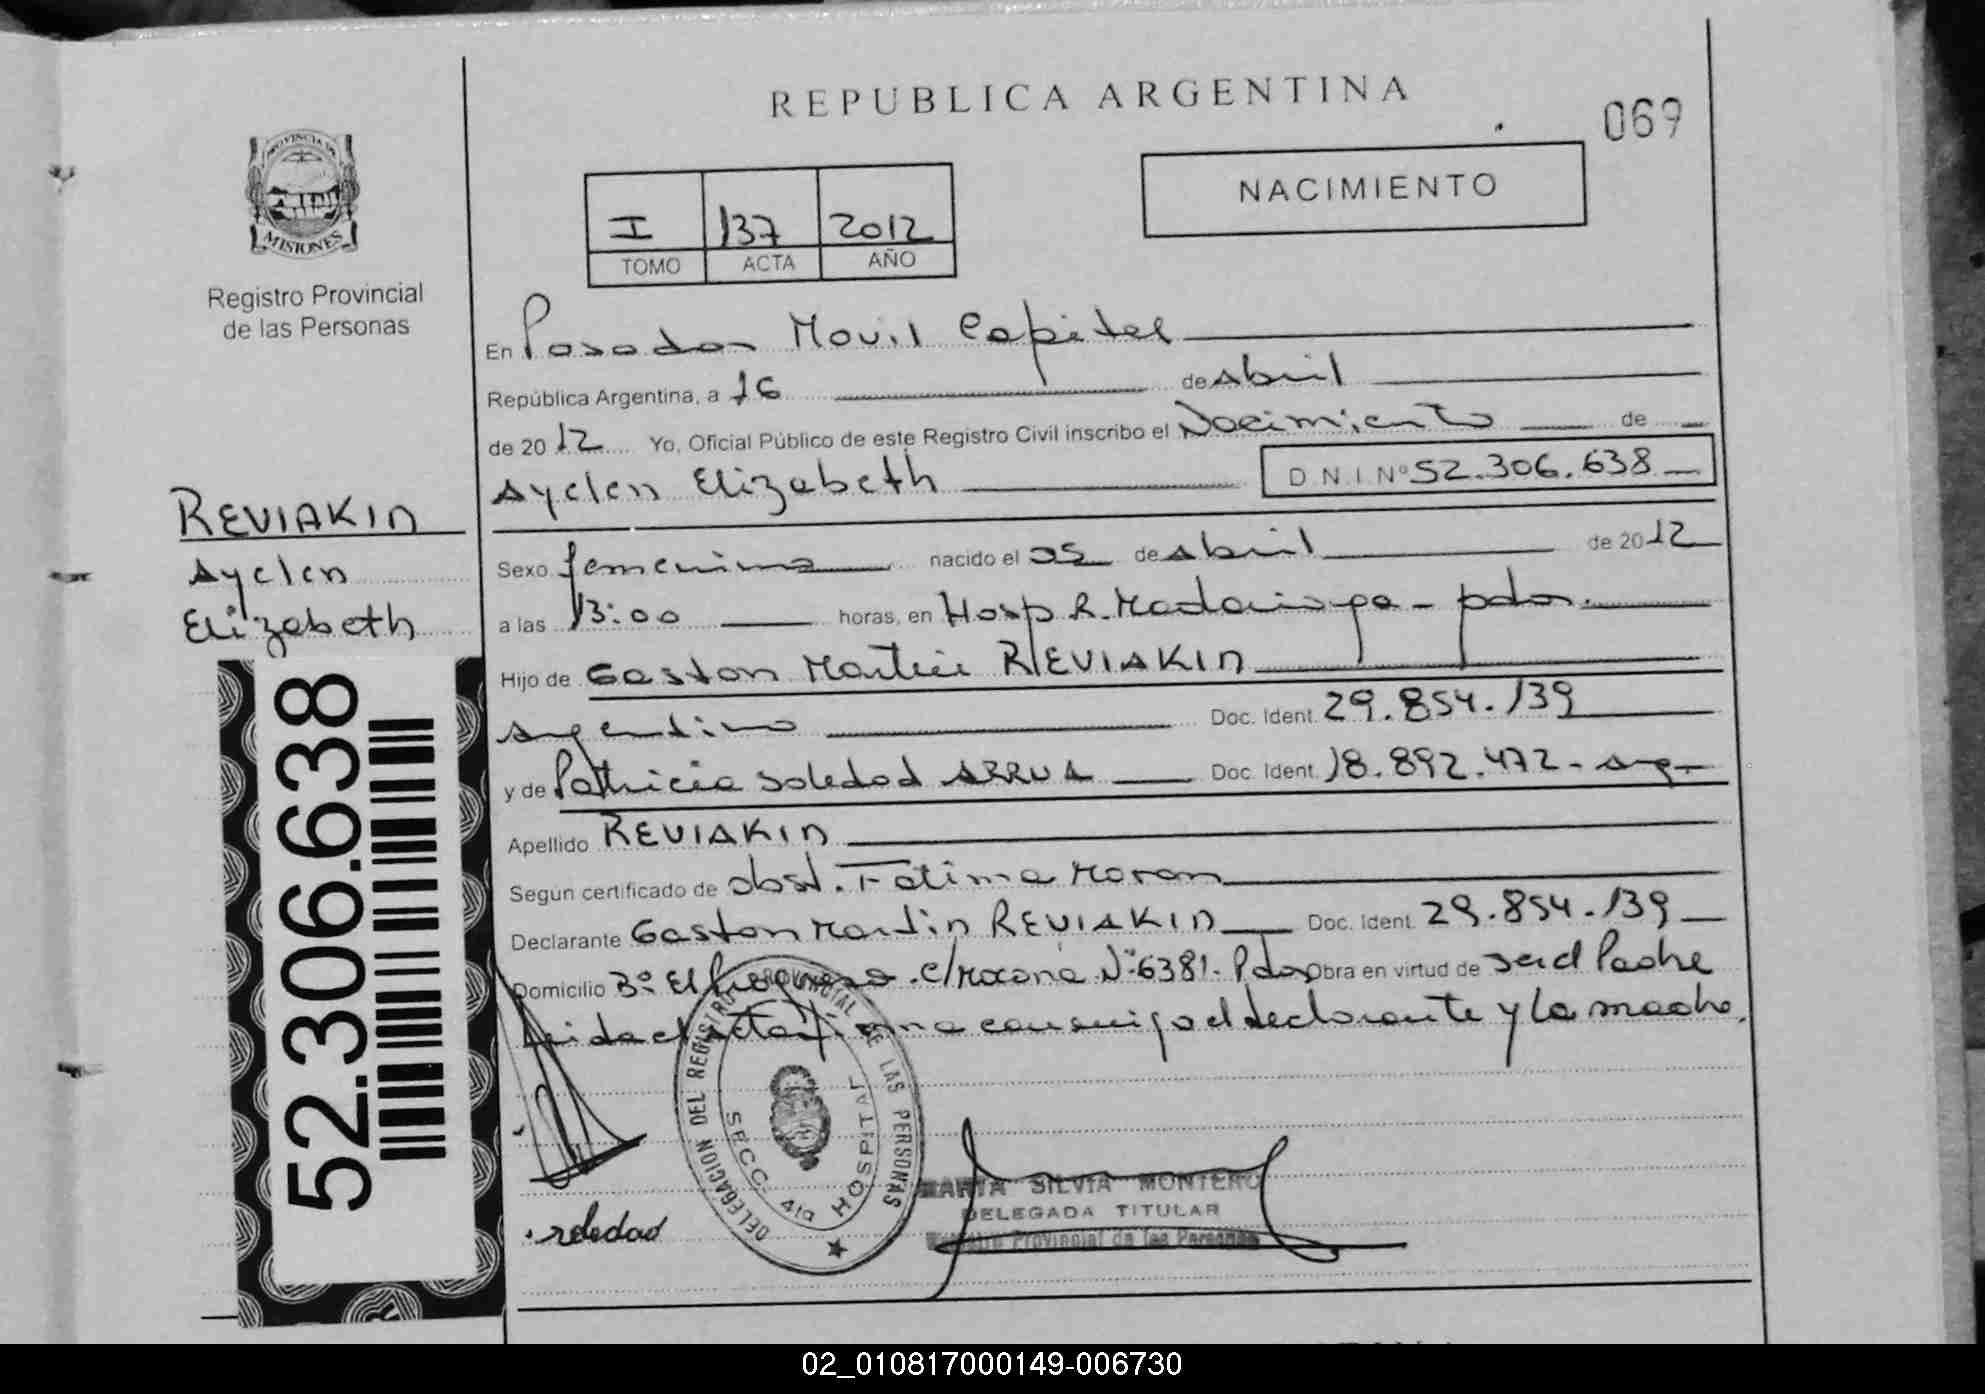 REPUBLICA ARGENTINA
069
PROVINCIA DE
MISIONES
Registro Provincial
de las Personas
I 137 2012
TOMO ACTA AÑO
NACIMIENTO
En Posadas Movil Capital
República Argentina, a 16 de Abril
de 2012 Yo, Oficial Público de este Registro Civil inscribo el Nacimiento de
Ayelen Elizabeth D.N.I.Nº 52.306.638
REVIAKIN
Ayelen
Elizabeth
52.306.638
Sexo femenino nacido el 05 de Abril de 2012
a las 13:00 horas, en Hosp R. Madariaga - pdas.
Hijo de Gaston Martin REVIAKIN
argentino Doc. Ident. 29.854.139
y de Patricia Soledad ARRUA Doc. Ident. 18.892.472 - arg -
Apellido REVIAKIN
Según certificado de obst. Fatima Moran
Declarante Gaston Martin REVIAKIN Doc. Ident. 29.854.139
Domicilio Bº El Progreso . C/Mocona Nº 6381- Pdas Obra en virtud de ser el Padre
leida el acta firma conmigo el declarante y la madre.
DELEGACION DEL REGISTRO PROVINCIAL DE LAS PERSONAS
SECC. 4ta HOSPITAL
soledad
MARTA SILVIA MONTERO
DELEGADA TITULAR
Registro Provincial de las Personas
02_010817000149-006730